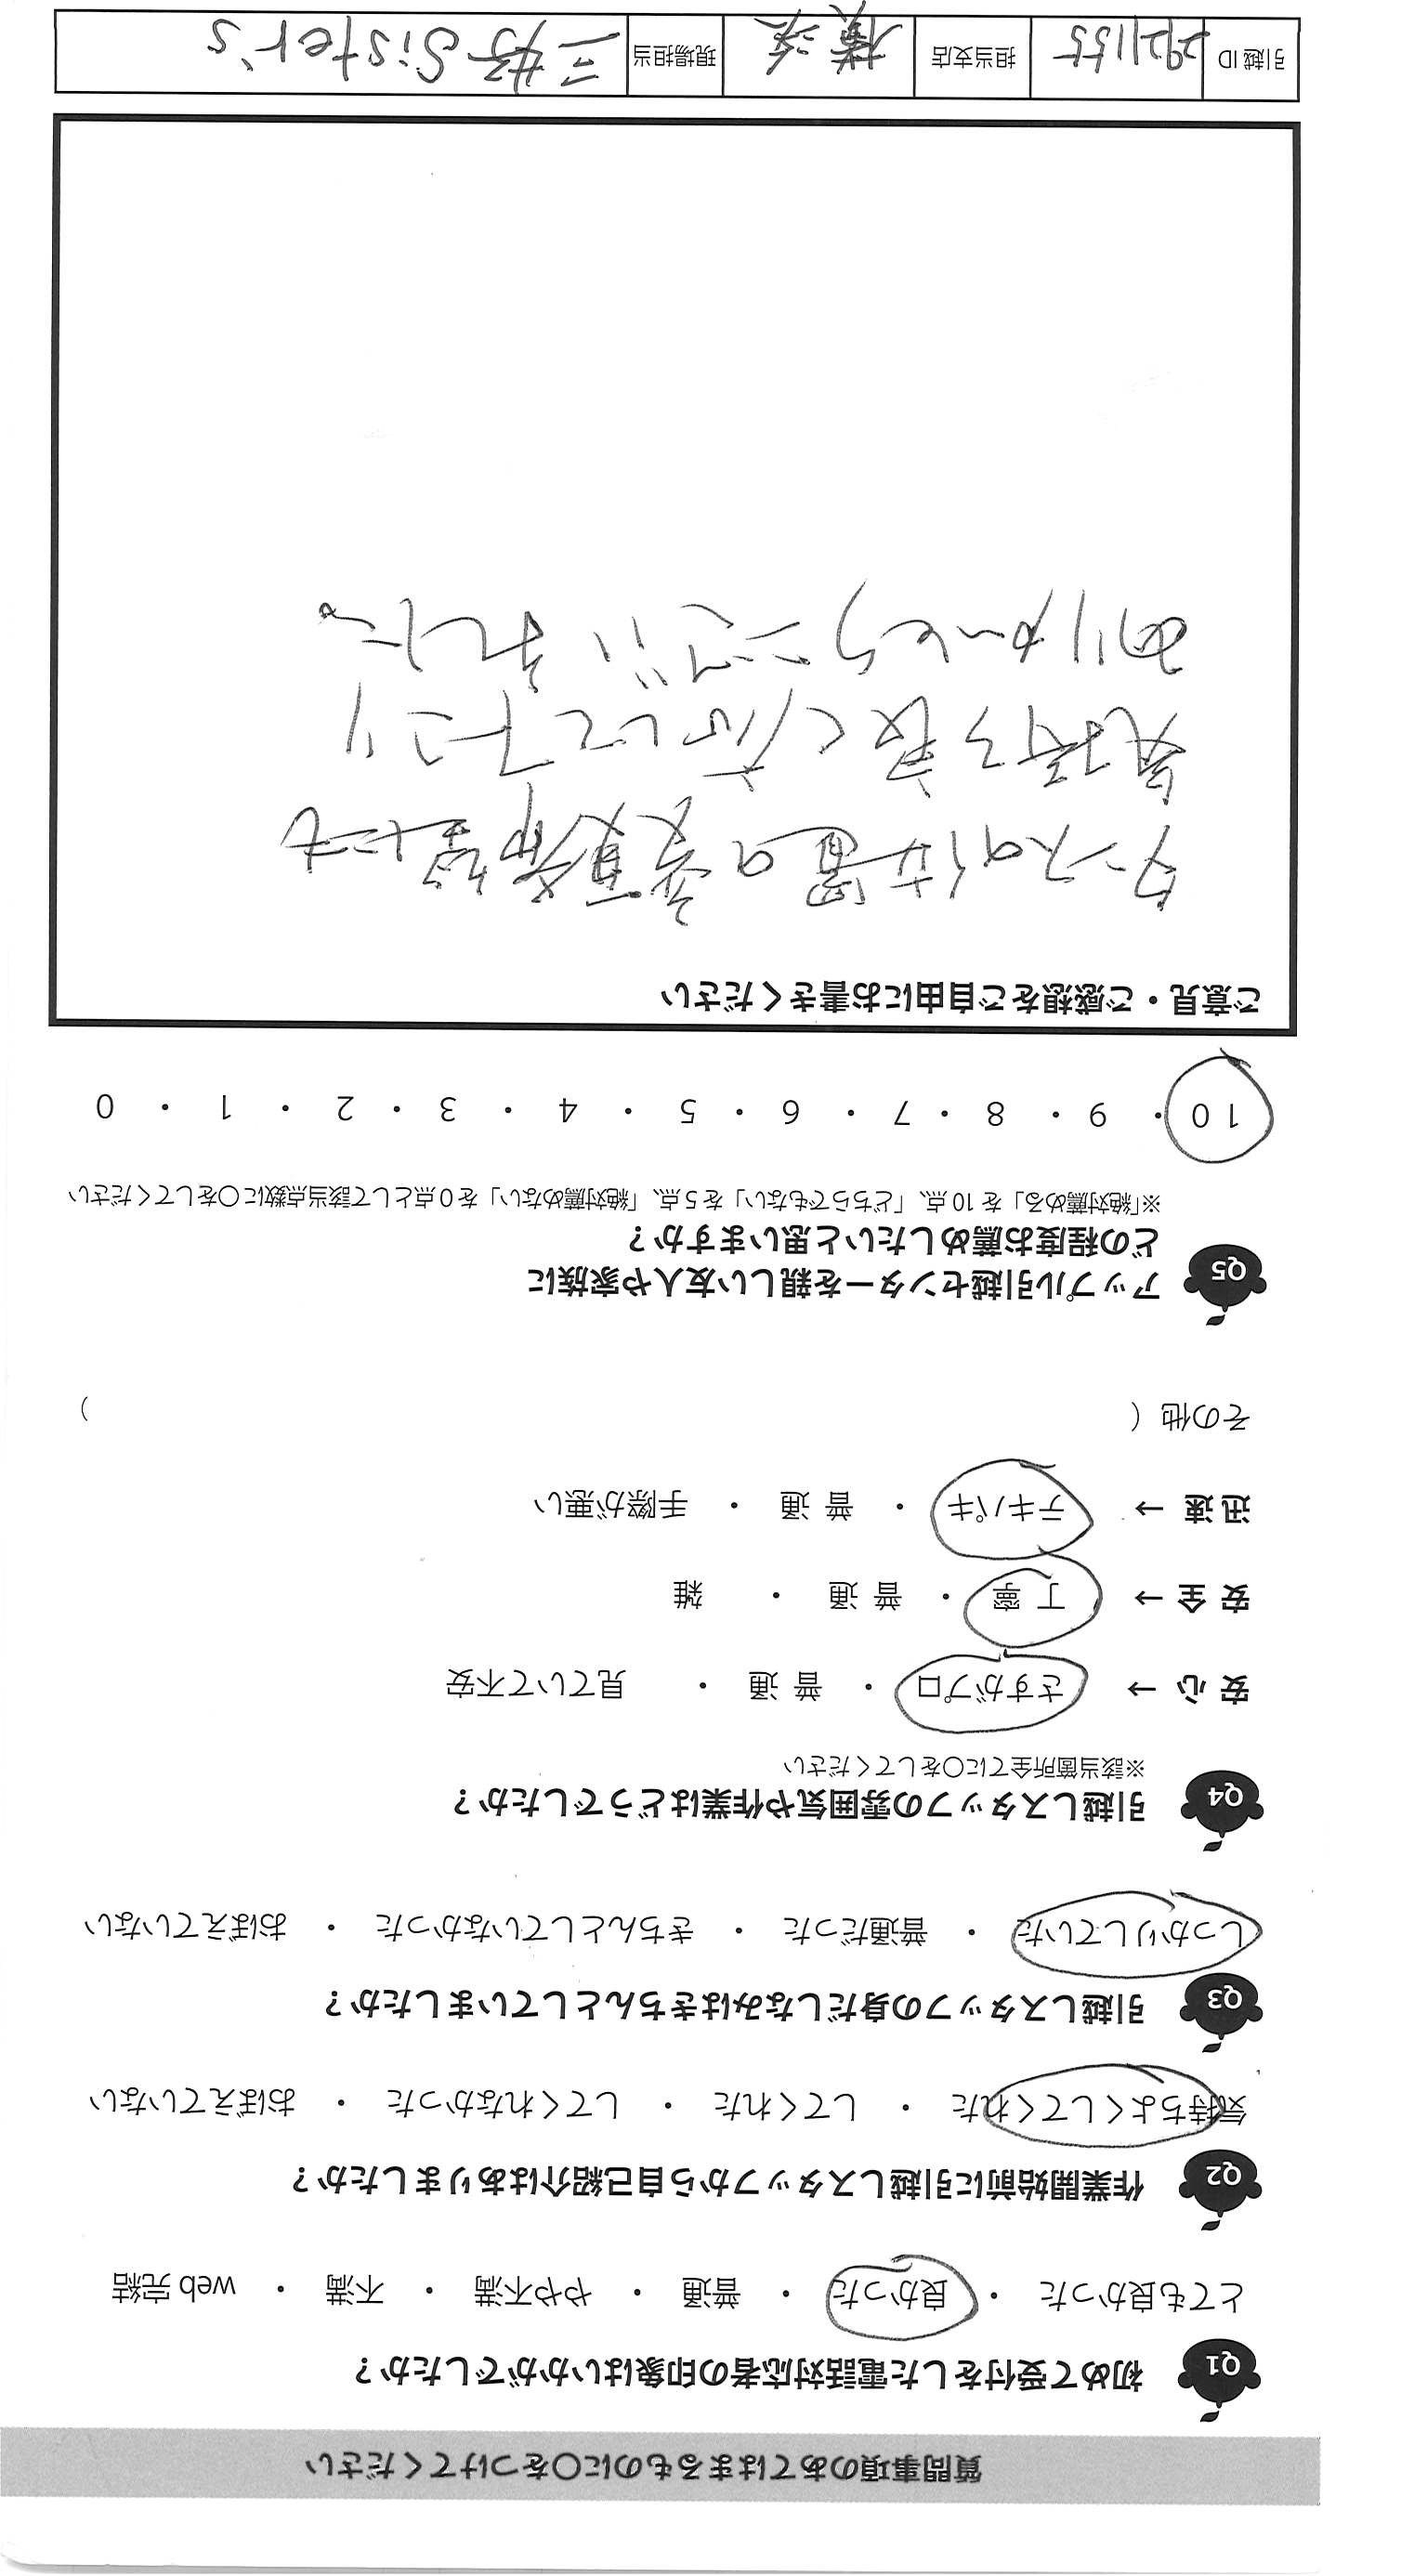 質問事項のあてはまるものに○をつけてください
Q1 初めて受付をした電話対応者の印象はいかがでしたか？
とても良かった ・ 良かった ・ 普通 ・ やや不満 ・ 不満 ・ web完結
Q2 作業開始前に引越しスタッフから自己紹介はありましたか？
気持ちよくしてくれた ・ してくれた ・ してくれなかった ・ おぼえていない
Q3 引越しスタッフの身だしなみはきちんとしていましたか？
しっかりしていた ・ 普通だった ・ きちんとしていなかった ・ おぼえていない
Q4 引越しスタッフの雰囲気や作業はどうでしたか？
※該当箇所全てに○をしてください
安心 → さすがプロ ・ 普通 ・ 見ていて不安
安全 → 丁寧 ・ 普通 ・ 雑
迅速 → テキパキ ・ 普通 ・ 手際が悪い
その他（ ）
Q5 アップル引越センターを親しい友人や家族に
どの程度お薦めしたいと思いますか？
※「絶対薦める」を10点、「どちらでもない」を5点、「絶対薦めない」を0点として該当点数に○をしてください
10 ・ 9 ・ 8 ・ 7 ・ 6 ・ 5 ・ 4 ・ 3 ・ 2 ・ 1 ・ 0
ご意見・ご感想をご自由にお書きください
タンスの位置の変更希望にも
気持ち良く応じて下さり
ありがとうございました。
引越ID 2921155 担当支店 横浜 現場担当 三好Sister's